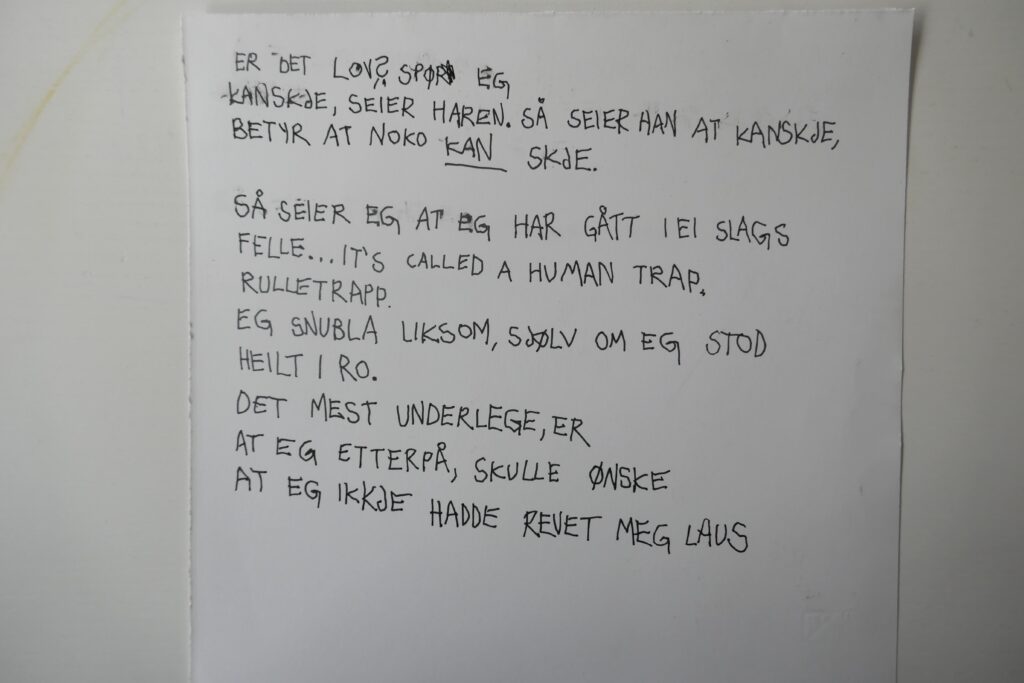 ER DET LOV? SPØR EG
KANSKJE, SEIER HAREN. SÅ SEIER HAN AT KANSKJE,
BETYR AT NOKO KAN SKJE.
SÅ SEIER EG AT EG HAR GÅTT I EI SLAGS
FELLE... IT'S CALLED A HUMAN TRAP.
RULLETRAPP.
EG SNUBLA LIKSOM, SJØLV OM EG STOD
HEILT I RO.
DET MEST UNDERLEGE, ER
AT EG ETTERPÅ, SKULLE ØNSKE
AT EG IKKJE HADDE REVET MEG LAUS